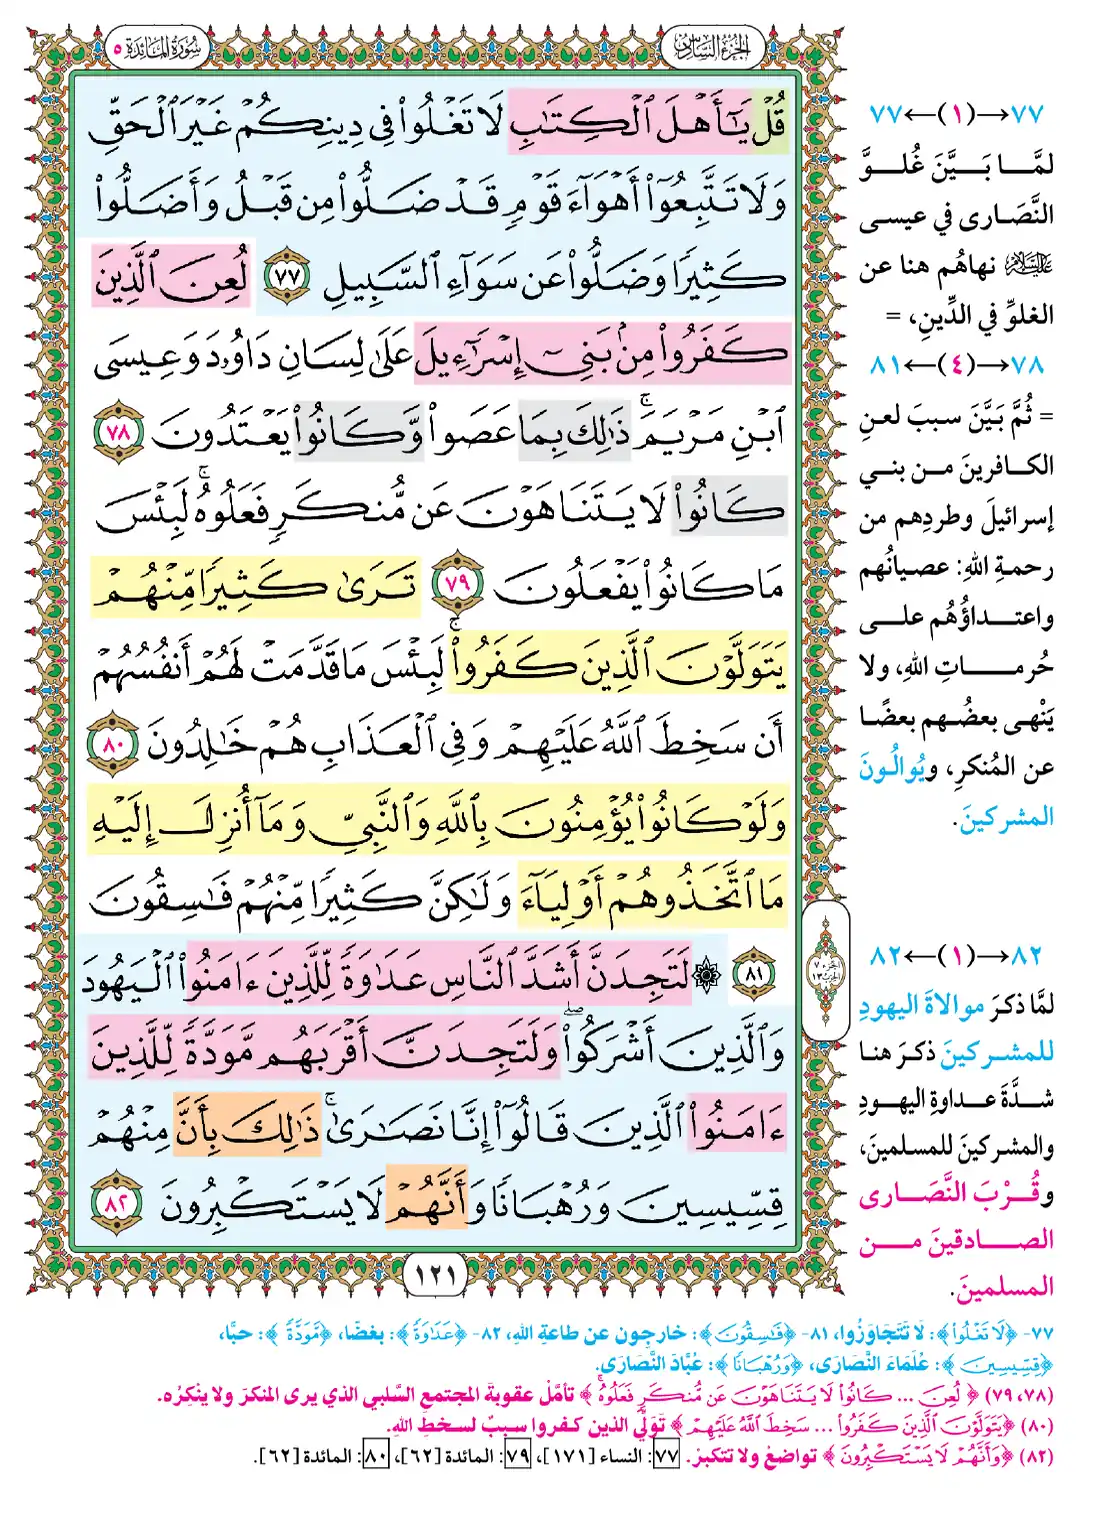 الجزء السادس
سورة المائدة ٥
قُلْ يَٰٓأَهْلَ ٱلْكِتَٰبِ لَا تَغْلُوا۟ فِى دِينِكُمْ غَيْرَ ٱلْحَقِّ
وَلَا تَتَّبِعُوٓا۟ أَهْوَآءَ قَوْمٍ قَدْ ضَلُّوا۟ مِن قَبْلُ وَأَضَلُّوا۟
كَثِيرًا وَضَلُّوا۟ عَن سَوَآءِ ٱلسَّبِيلِ ٧٧ لُعِنَ ٱلَّذِينَ
كَفَرُوا۟ مِنۢ بَنِىٓ إِسْرَٰٓءِيلَ عَلَىٰ لِسَانِ دَاوُۥدَ وَعِيسَى
ٱبْنِ مَرْيَمَ ۚ ذَٰلِكَ بِمَا عَصَوا۟ وَّكَانُوا۟ يَعْتَدُونَ ٧٨
كَانُوا۟ لَا يَتَنَاهَوْنَ عَن مُّنكَرٍ فَعَلُوهُ ۚ لَبِئْسَ
مَا كَانُوا۟ يَفْعَلُونَ ٧٩ تَرَىٰ كَثِيرًا مِّنْهُمْ
يَتَوَلَّوْنَ ٱلَّذِينَ كَفَرُوا۟ ۚ لَبِئْسَ مَا قَدَّمَتْ لَهُمْ أَنفُسُهُمْ
أَن سَخِطَ ٱللَّهُ عَلَيْهِمْ وَفِى ٱلْعَذَابِ هُمْ خَٰلِدُونَ ٨٠
وَلَوْ كَانُوا۟ يُؤْمِنُونَ بِٱللَّهِ وَٱلنَّبِىِّ وَمَآ أُنزِلَ إِلَيْهِ
مَا ٱتَّخَذُوهُمْ أَوْلِيَآءَ وَلَٰكِنَّ كَثِيرًا مِّنْهُمْ فَٰسِقُونَ
٨١ ۞ لَتَجِدَنَّ أَشَدَّ ٱلنَّاسِ عَدَٰوَةً لِّلَّذِينَ ءَامَنُوا۟ ٱلْيَهُودَ
وَٱلَّذِينَ أَشْرَكُوا۟ ۖ وَلَتَجِدَنَّ أَقْرَبَهُم مَّوَدَّةً لِّلَّذِينَ
ءَامَنُوا۟ ٱلَّذِينَ قَالُوٓا۟ إِنَّا نَصَٰرَىٰ ۚ ذَٰلِكَ بِأَنَّ مِنْهُمْ
قِسِّيسِينَ وَرُهْبَانًا وَأَنَّهُمْ لَا يَسْتَكْبِرُونَ ٨٢
١٢١
٧٧←(١)→٧٧
لمَّا بَيَّنَ غُلوَّ
النَّصَارى في عيسى
عليه السلام نهاهُم هنا عن
الغلوِّ في الدِّينِ، =
٧٨→(٤)←٨١
= ثُمَّ بَيَّنَ سببَ لعنِ
الكافرينَ من بني
إسرائيلَ وطردِهم من
رحمةِ اللهِ: عصيانُهم
واعتداؤُهُم على
حُرماتِ اللهِ، ولا
يَنْهى بعضُهم بعضًا
عن المُنكرِ، ويُوالُونَ
المشركينَ.
٨٢→(١)←٨٢
لمَّا ذكرَ موالاةَ اليهودِ
للمشركينَ ذكرَ هنا
شدَّةَ عداوةِ اليهودِ
والمشركينَ للمسلمينَ،
وقُرْبَ النَّصَارى
الصادقينَ من
المسلمينَ.
٧٧- ﴿لَا تَغْلُوا۟﴾: لَا تَتَجَاوَزُوا، ٨١- ﴿فَٰسِقُونَ﴾: خارجون عن طاعةِ اللهِ، ٨٢- ﴿عَدَٰوَةً﴾: بغضًا، ﴿مَّوَدَّةً﴾: حبًّا،
﴿قِسِّيسِينَ﴾: عُلَمَاءَ النَّصَارَى، ﴿وَرُهْبَانًا﴾: عُبَّادَ النَّصَارَى.
(٧٨، ٧٩) ﴿لُعِنَ ... كَانُوا۟ لَا يَتَنَاهَوْنَ عَن مُّنكَرٍ فَعَلُوهُ ۚ﴾ تأمَّلْ عقوبةَ المجتمعِ السَّلبي الذي يرى المنكرَ ولا ينْكِرُه.
(٨٠) ﴿يَتَوَلَّوْنَ ٱلَّذِينَ كَفَرُوا۟ ... سَخِطَ ٱللَّهُ عَلَيْهِمْ﴾ تَولِّي الذين كفروا سببٌ لسخطِ اللهِ.
(٨٢) ﴿وَأَنَّهُمْ لَا يَسْتَكْبِرُونَ﴾ تواضعْ ولا تتكبرْ. ٧٧: النساء [١٧١]، ٧٩: المائدة [٦٢]، ٨٠: المائدة [٦٢].